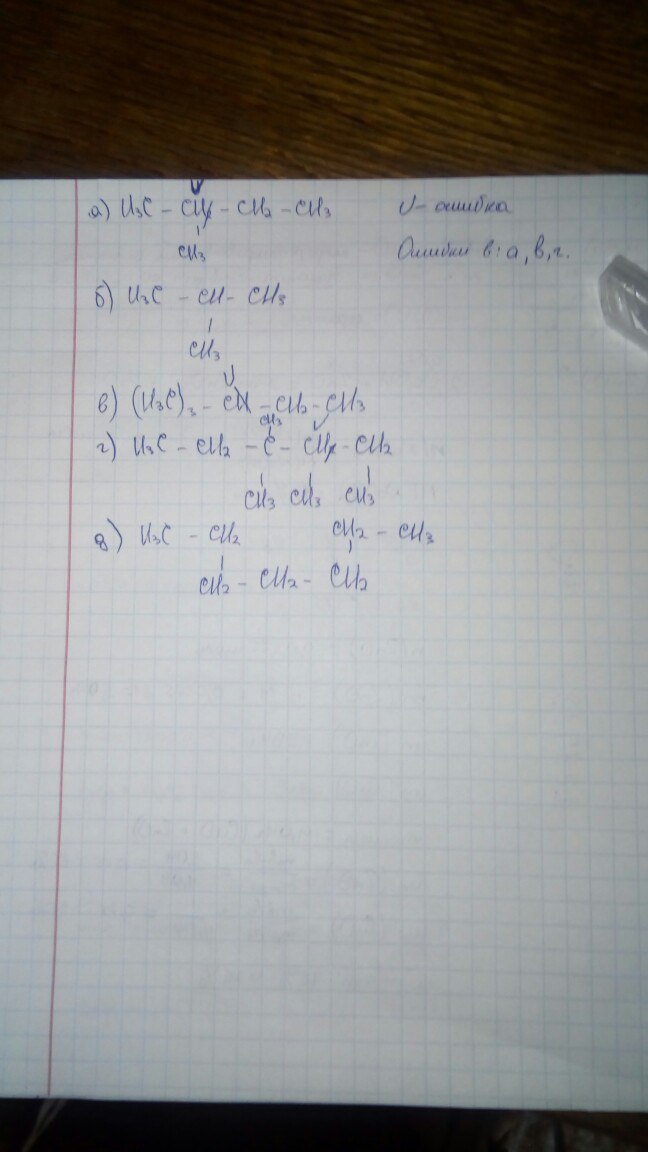 а) H₃C - CH₂ - CH₂ - CH₃
V - ошибка
CH₃
Ошибки в: а, в, г.
б) H₃C - CH - CH₃
CH₃
в) (H₃C)₃ - CH - CH₂ - CH₃
CH₃
г) H₃C - CH₂ - C - CH₂ - CH₂
CH₃ CH₃ CH₃
д) H₃C - CH₂ CH₂ - CH₃
CH₂ - CH₂ - CH₂